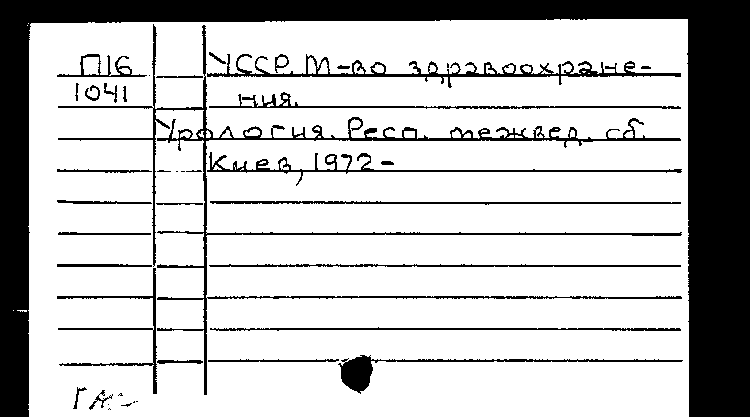 П16 УССР. М-во здравоохране-
1041 ния.
Урология. Респ. межвед. сб.
Киев, 1972-